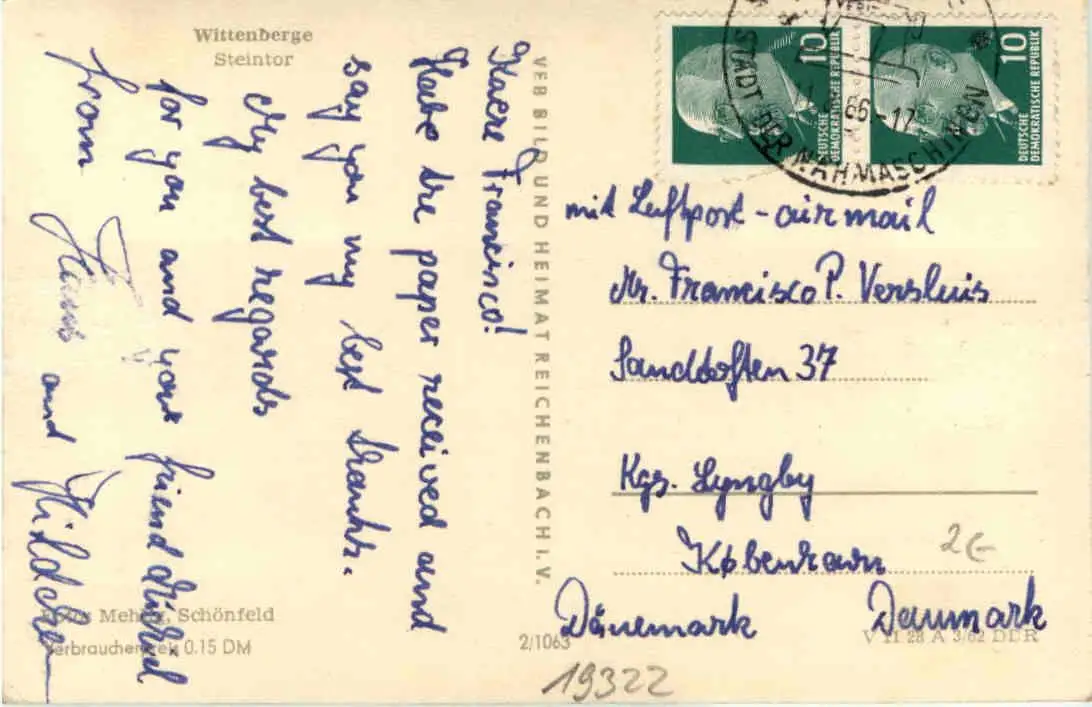 Wittenberge
Steintor
Kaere Francisco!
Habe the paper received and
say you my best thanks.
My best regards
for you and your friend Michael
from Hans and
VEB BILD UND HEIMAT REICHENBACH I. V.
10
DEUTSCHE
DEMOKRATISCHE REPUBLIK
10
DEUTSCHE
DEMOKRATISCHE REPUBLIK
66-17
STADT DER NÄHMASCHINEN
mit Luftpost - air mail
Mr. Francisco P. Versluis
Sanddoften 37
Kgs. Lyngby
København
Dänemark Danmark
2€
Mehlig, Schönfeld
Verbraucherpreis 0.15 DM
2/1063
V 11 28 A 3/62 DDR
19322